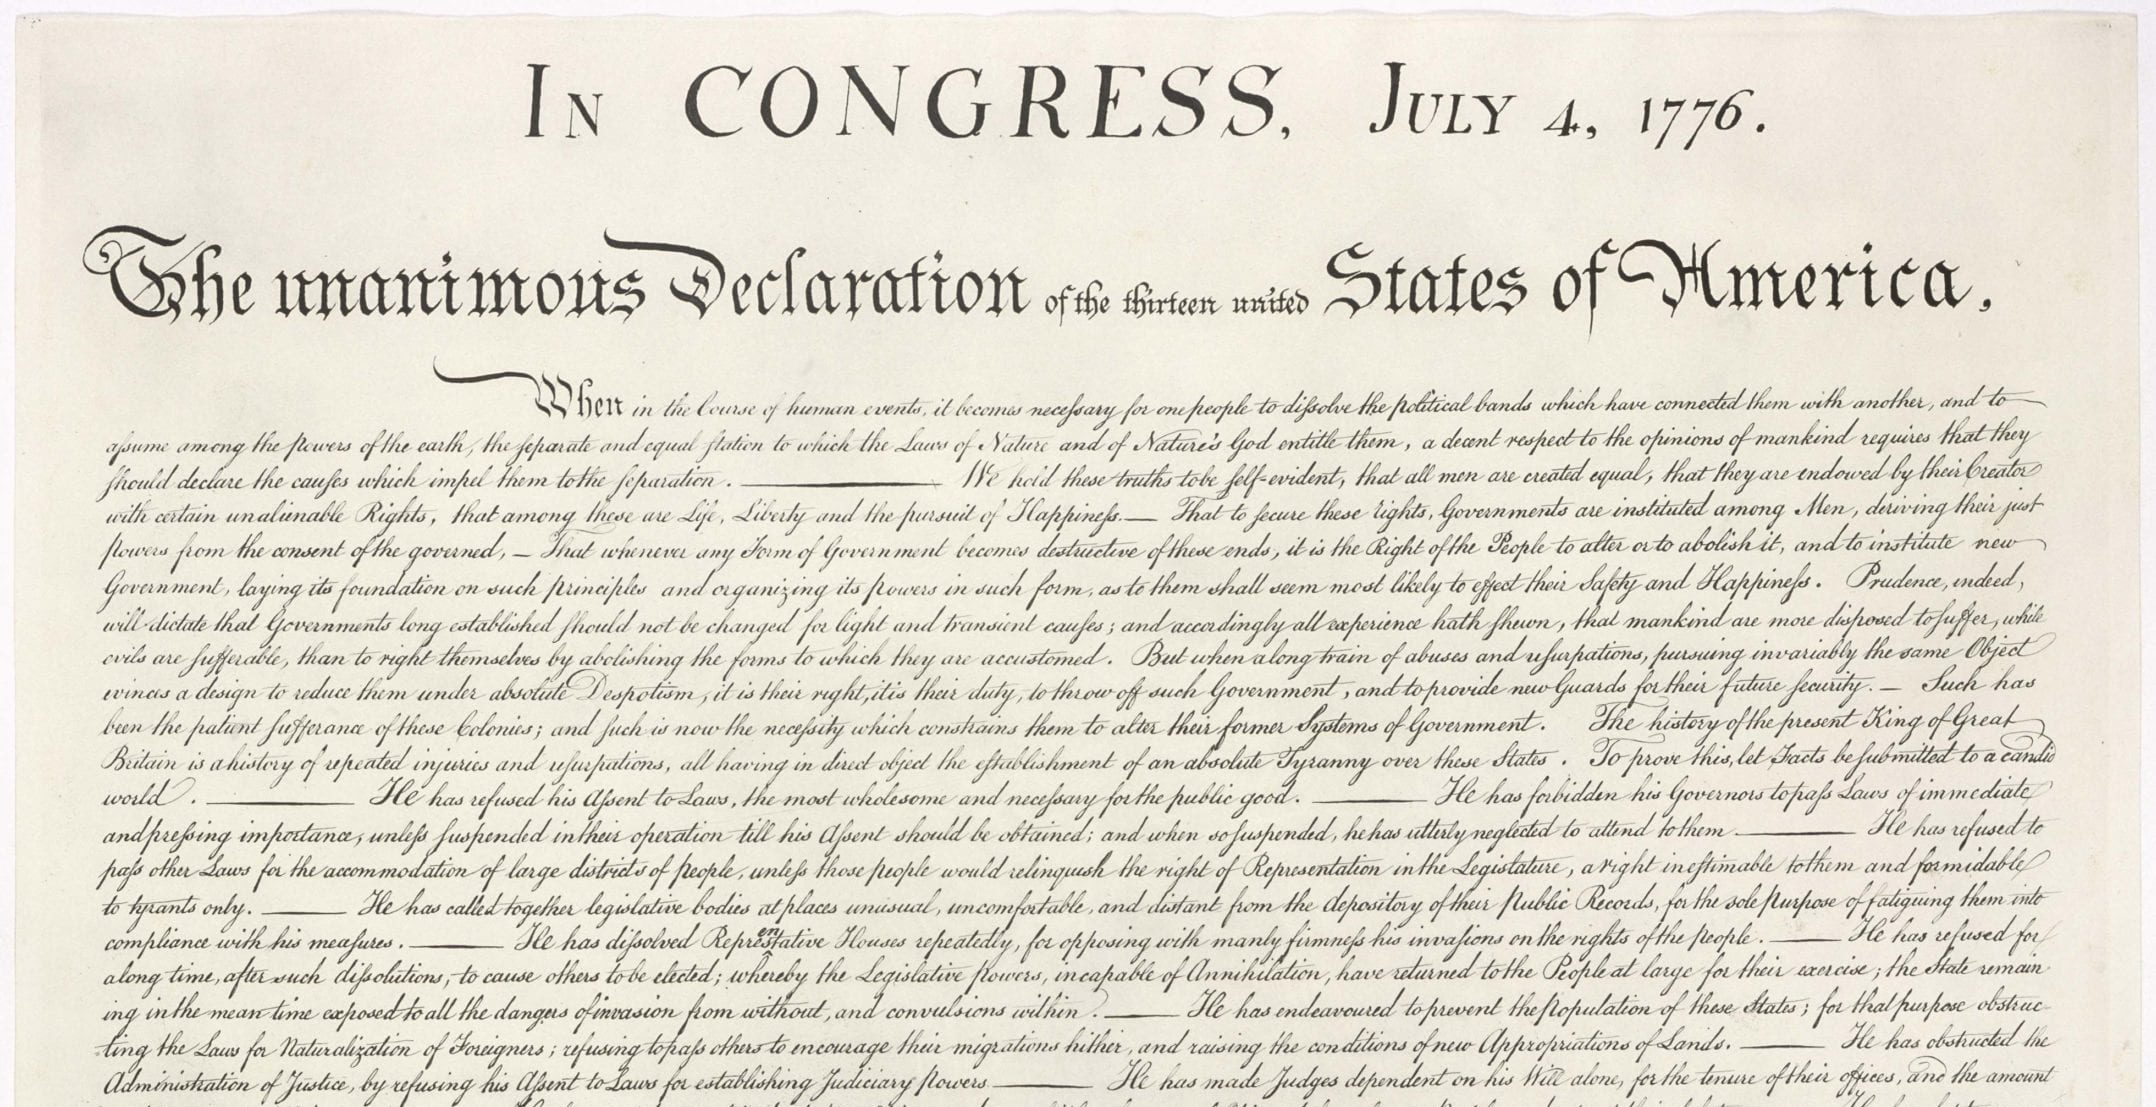 In CONGRESS, July 4, 1776.
The unanimous Declaration of the thirteen united States of America,
When in the Course of human events, it becomes necessary for one people to dissolve the political bands which have connected them with another, and to
assume among the powers of the earth, the separate and equal station to which the Laws of Nature and of Nature's God entitle them, a decent respect to the opinions of mankind requires that they
should declare the causes which impel them to the separation. — We hold these truths to be self-evident, that all men are created equal, that they are endowed by their Creator
with certain unalienable Rights, that among these are Life, Liberty and the pursuit of Happiness. — That to secure these rights, Governments are instituted among Men, deriving their just
powers from the consent of the governed, — That whenever any Form of Government becomes destructive of these ends, it is the Right of the People to alter or to abolish it, and to institute new
Government, laying its foundation on such principles and organizing its powers in such form, as to them shall seem most likely to effect their Safety and Happiness. Prudence, indeed,
will dictate that Governments long established should not be changed for light and transient causes; and accordingly all experience hath shewn, that mankind are more disposed to suffer, while
evils are sufferable, than to right themselves by abolishing the forms to which they are accustomed. But when a long train of abuses and usurpations, pursuing invariably the same Object
evinces a design to reduce them under absolute Despotism, it is their right, it is their duty, to throw off such Government, and to provide new Guards for their future security. — Such has
been the patient sufferance of these Colonies; and such is now the necessity which constrains them to alter their former Systems of Government. The history of the present King of Great
Britain is a history of repeated injuries and usurpations, all having in direct object the establishment of an absolute Tyranny over these States. To prove this, let Facts be submitted to a candid
world. — He has refused his Assent to Laws, the most wholesome and necessary for the public good. — He has forbidden his Governors to pass Laws of immediate
and pressing importance, unless suspended in their operation till his Assent should be obtained; and when so suspended, he has utterly neglected to attend to them. — He has refused to
pass other Laws for the accommodation of large districts of people, unless those people would relinquish the right of Representation in the Legislature, a right inestimable to them and formidable
to tyrants only. — He has called together legislative bodies at places unusual, uncomfortable, and distant from the depository of their Public Records, for the sole purpose of fatiguing them into
compliance with his measures. — He has dissolved Representative Houses repeatedly, for opposing with manly firmness his invasions on the rights of the people. — He has refused for
a long time, after such dissolutions, to cause others to be elected; whereby the Legislative powers, incapable of Annihilation, have returned to the People at large for their exercise; the State remain
ing in the mean time exposed to all the dangers of invasion from without, and convulsions within. — He has endeavoured to prevent the population of these States; for that purpose obstruc-
ting the Laws for Naturalization of Foreigners; refusing to pass others to encourage their migrations hither, and raising the conditions of new Appropriations of Lands. — He has obstructed the
Administration of Justice, by refusing his Assent to Laws for establishing Judiciary powers. — He has made Judges dependent on his Will alone, for the tenure of their offices, and the amount